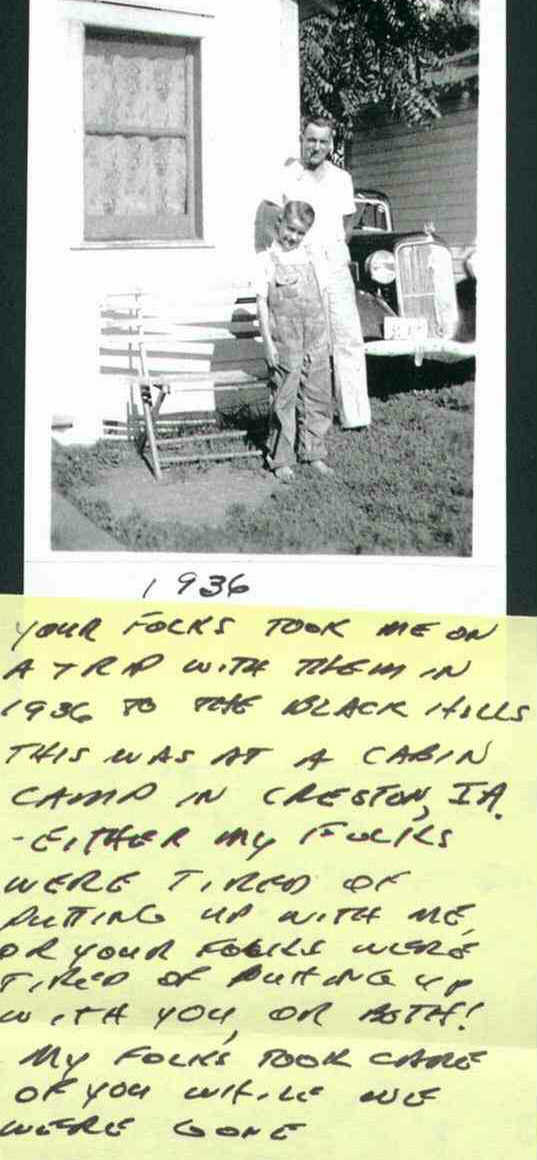 1936
YOUR FOLKS TOOK ME ON
A TRIP WITH THEM IN
1936 TO THE BLACK HILLS
THIS WAS AT A CABIN
CAMP IN CRESTON, IA.
-EITHER MY FOLKS
WERE TIRED OF
PUTTING UP WITH ME,
OR YOUR FOLKS WERE
TIRED OF PUTTING UP
WITH YOU, OR BOTH!
MY FOLKS TOOK CARE
OF YOU WHILE WE
WERE GONE